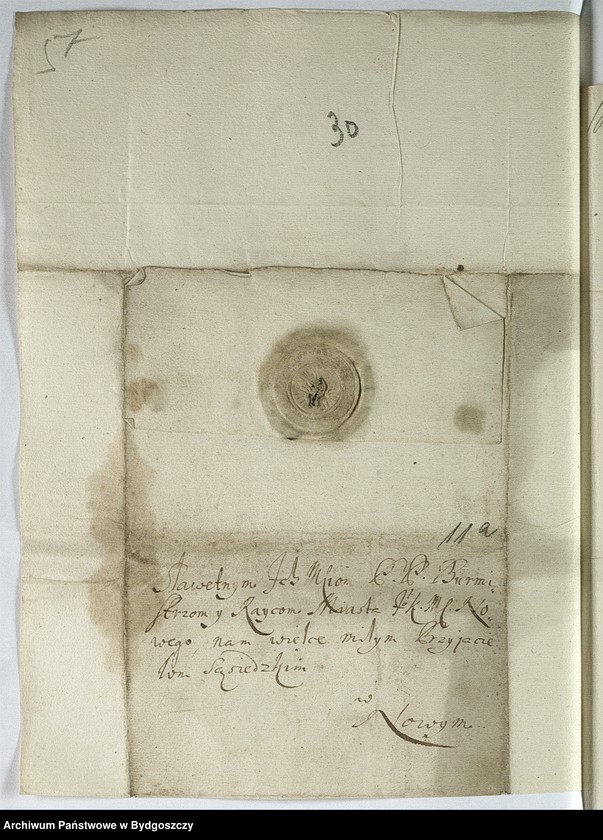 57
30
11a
Sławetnym Ich Mciom P. P. Burmi
strzom y Raycom Miasta J. K. M. No,
wego nam wielce miłym Przyjacie
lom Sąsiedzkim
w
Nowym.
Archiwum Państwowe w Bydgoszczy